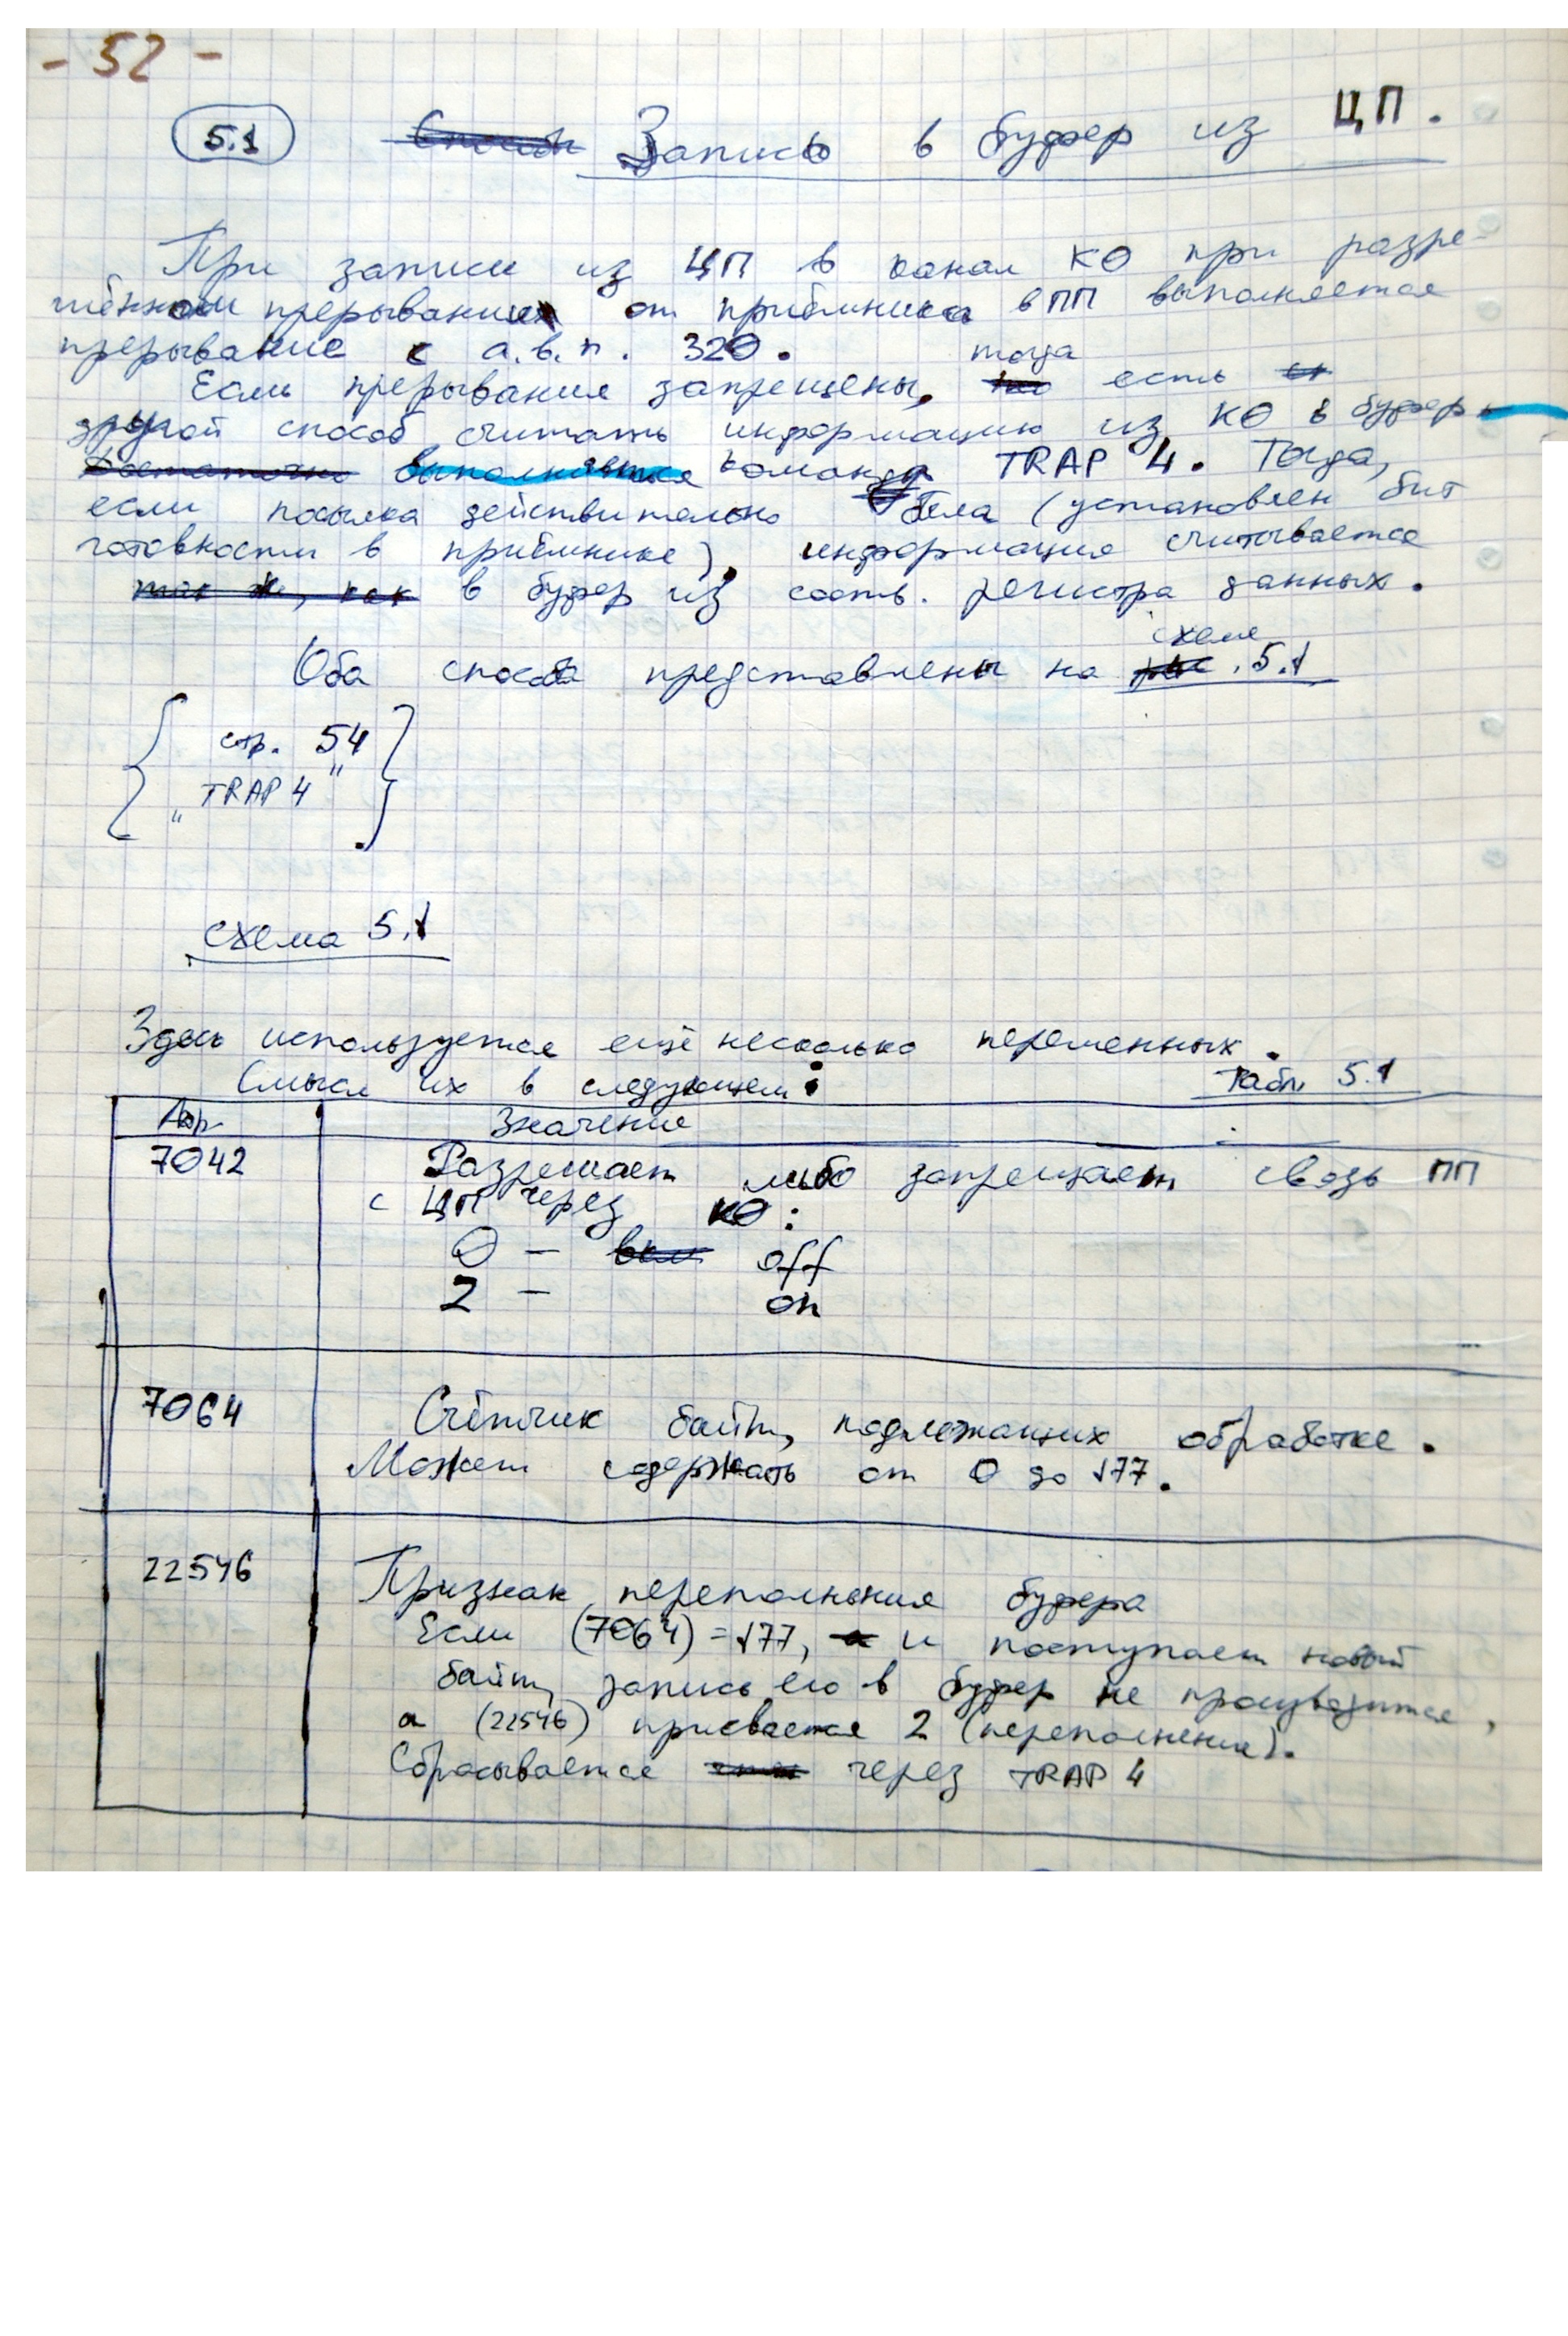 - 52 -
5.1 Запись в буфер из ЦП.
При записи из ЦП в канал К0 при разре-
шённом прерывании от приёмника в ПП выполняется
прерывание с а.в.п. 320.
Если прерывания запрещены, тогда есть
другой способ считать информацию из К0 в буфер -
выполняется команда TRAP 4. Тогда,
если посылка действительно была (установлен бит
готовности в приёмнике), информация считывается
в буфер из соотв. регистра данных.
Оба способа представлены на схеме 5.1
стр. 54
"TRAP 4"
схема 5.1
Здесь используется ещё несколько переменных.
Смысл их в следующем: Табл. 5.1
Адр. Значение
7042 Разрешает либо запрещает связь ПП
с ЦП через К0:
0 - off
2 - on
7064 Счётчик байт, подлежащих обработке.
Может содержать от 0 до 177.
22546 Признак переполнения буфера
Если (7064)=177, и поступает новый
байт, запись его в буфер не производится,
а (22546) присвается 2 (переполнение).
Сбрасывается через TRAP 4